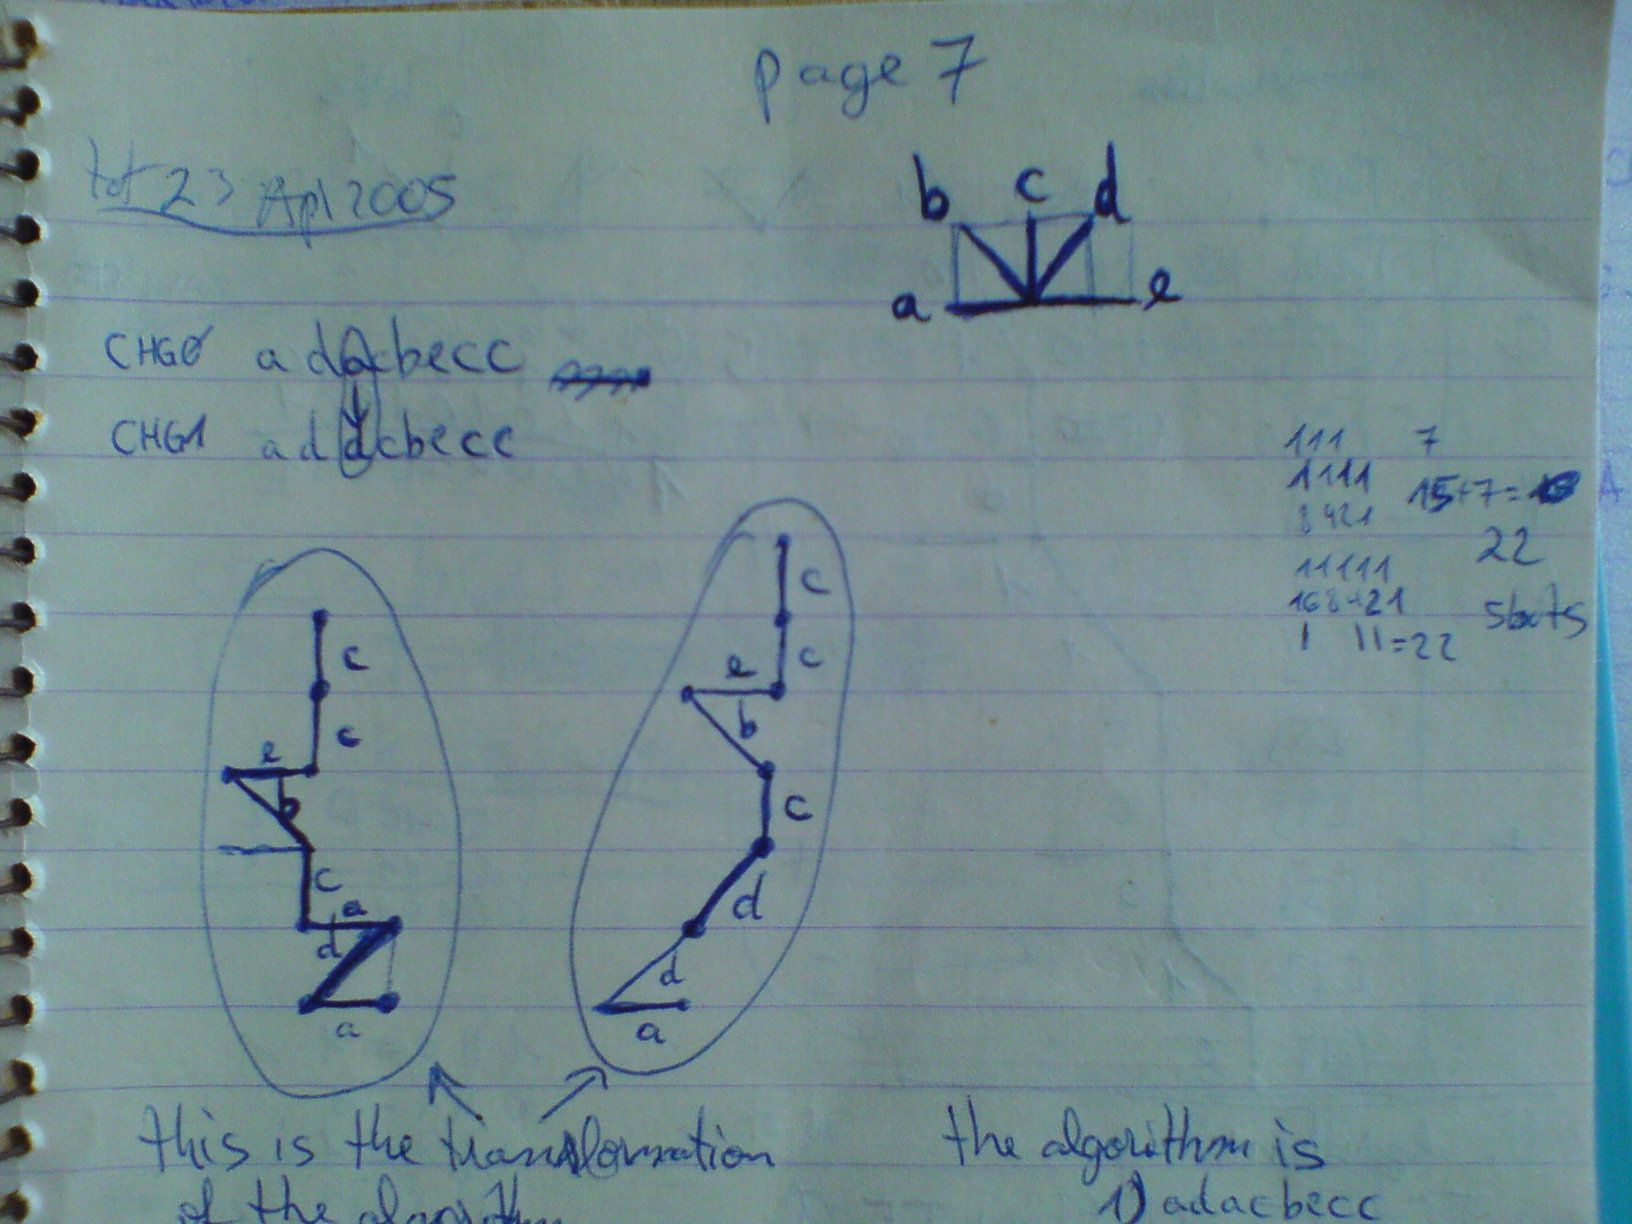 page 7
23 Apl 2005
b c d
a e
CHG0 adacbecc
CHG1 addcbecc
111 7
1111 15+7=
8421
22
11111
168421
1 11=22
c
c
e
b
c
a
d
a
c
c
e
b
c
d
d
a
this is the transformation
of the algorithm
the algorithm is
1) adacbecc